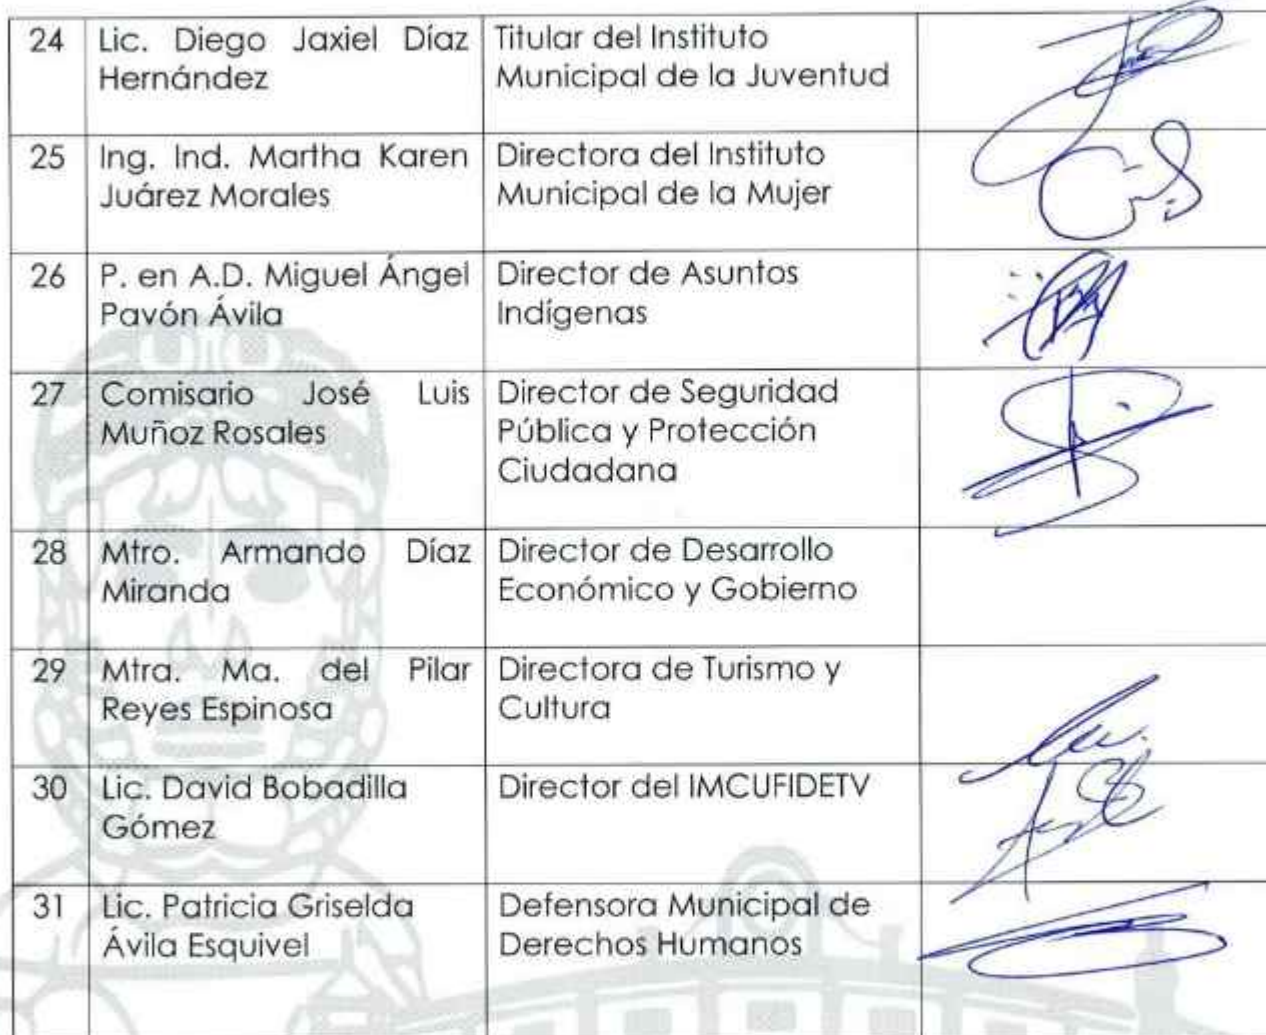 24 Lic. Diego Jaxiel Díaz Hernández Titular del Instituto Municipal de la Juventud
25 Ing. Ind. Martha Karen Juárez Morales Directora del Instituto Municipal de la Mujer
26 P. en A.D. Miguel Ángel Pavón Ávila Director de Asuntos Indígenas
27 Comisario José Luis Muñoz Rosales Director de Seguridad Pública y Protección Ciudadana
28 Mtro. Armando Díaz Miranda Director de Desarrollo Económico y Gobierno
29 Mtra. Ma. del Pilar Reyes Espinosa Directora de Turismo y Cultura
30 Lic. David Bobadilla Gómez Director del IMCUFIDETV
31 Lic. Patricia Griselda Ávila Esquivel Defensora Municipal de Derechos Humanos